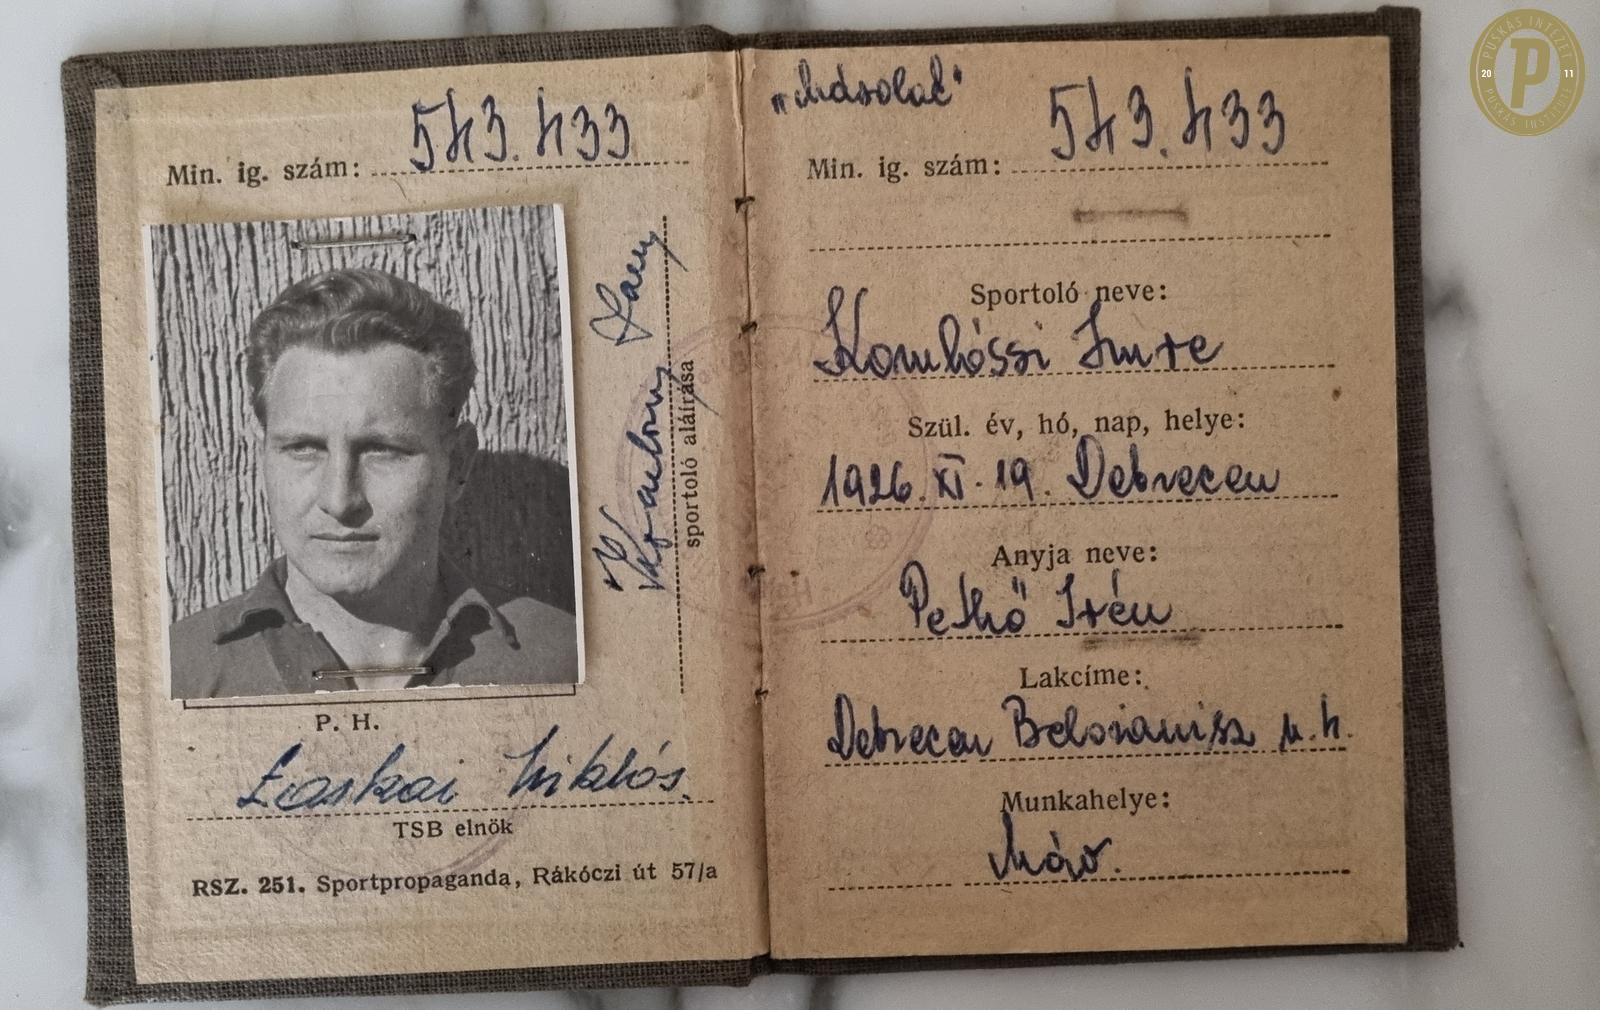 Min. ig. szám: 543.433
sportoló aláírása
P. H.
Laskai Miklós.
TSB elnök
RSZ. 251. Sportpropaganda, Rákóczi út 57/a
„Másolat"
Min. ig. szám: 543.433
Sportoló neve:
Komlóssi Imre
Szül. év, hó, nap, helye:
1926. XI. 19. Debrecen
Anyja neve:
Pethő Irén
Lakcíme:
Debrecen Belojanisz u. 4.
Munkahelye:
Máv.
PUSKÁS INTÉZET
20 P 11
PUSKÁS INSTITUTE